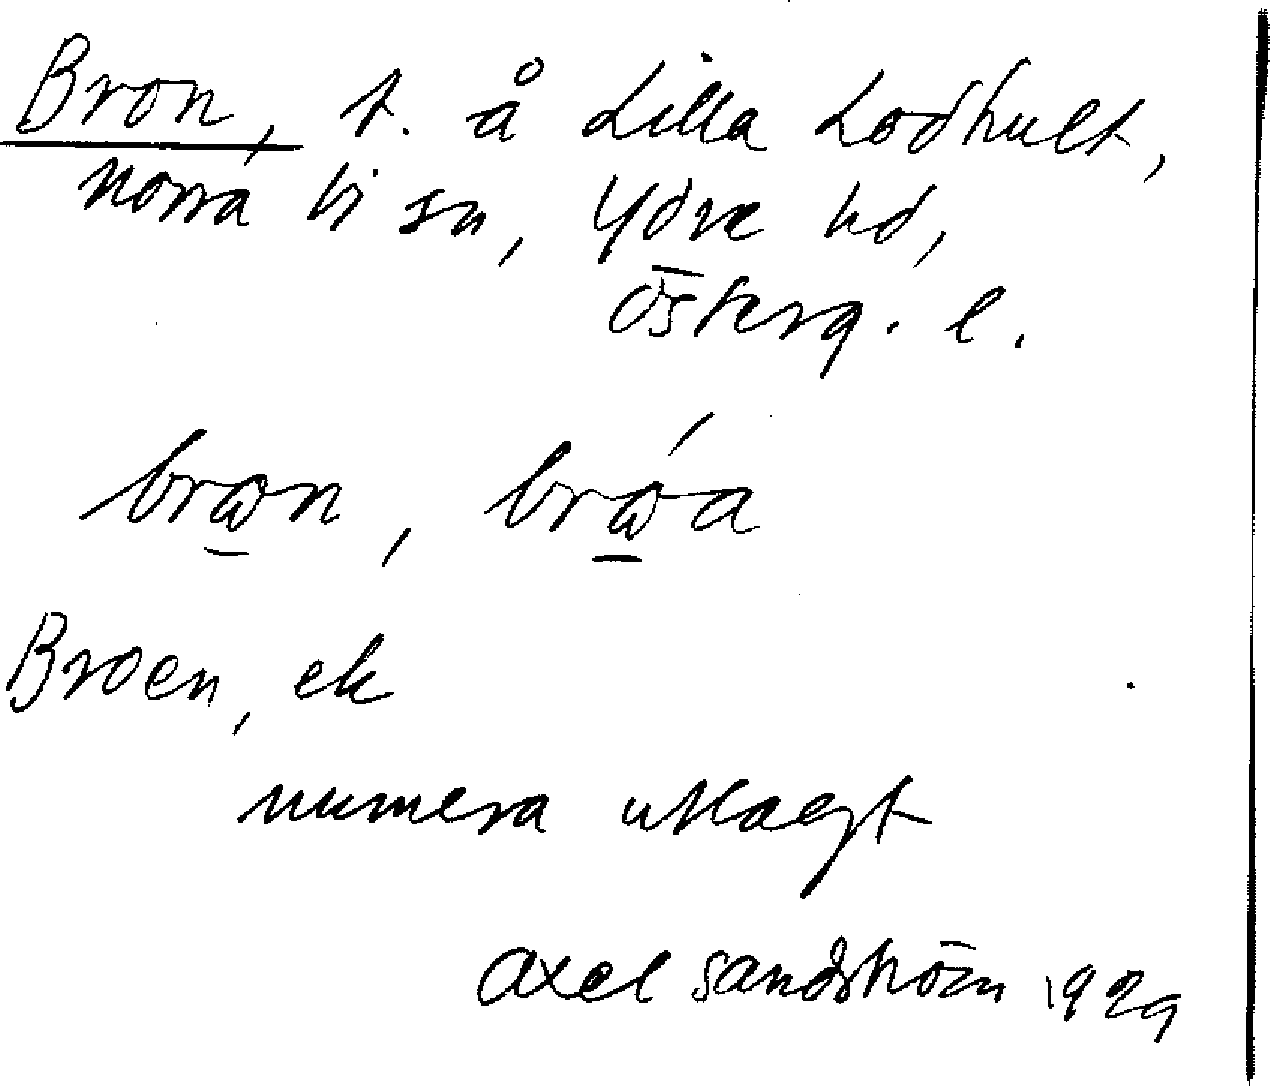 Bron, t. å Lilla Lodhult,
Norra Vi sn, Ydre hd,
Österg. l.
brωn, brώa
Broen, ek
numera utlagt
Axel Sandström 1929